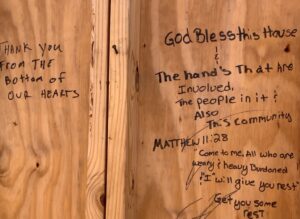 THANK YOU
FROM THE
BOTTOM OF
OUR HEARTS
God Bless this House
&
The hand's That Are
Involved,
The people in it &
Also
This community
MATTHEW 11:28
"Come to me, All who are
weary & heavy Burdoned
& "I" will give you rest"
Get you some
rest